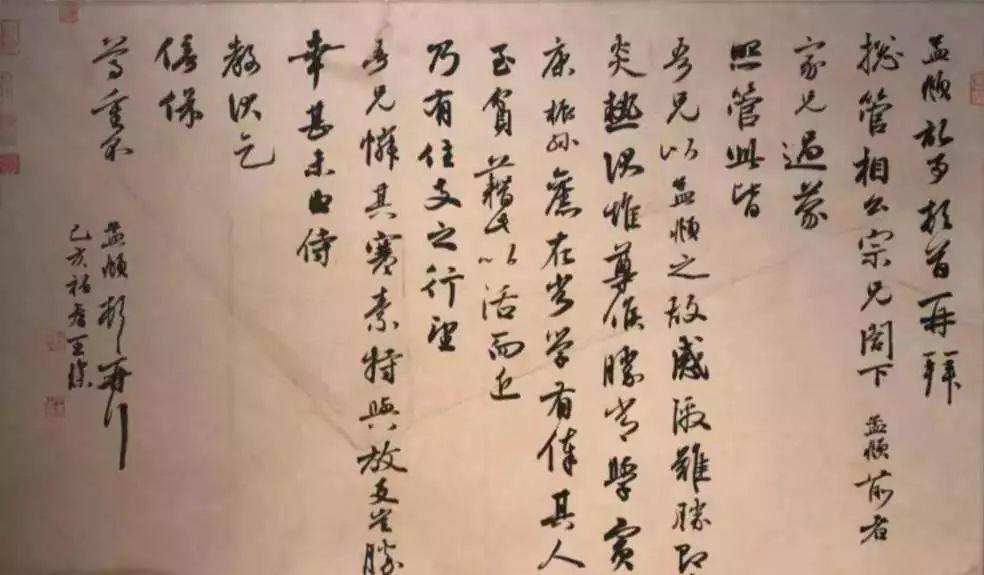 孟頫記事頓首再拜
總管相公宗兄閣下孟頫前者
家兄過蒙
照管此皆
吾兄以孟頫之故感激難勝即
炎熱伏惟尊候勝常學賓
康振孫舊在常學有俸其人
至貧藉此以活而近
乃有住支之行望
吾兄憐其寒素特與放支豈勝
幸甚未由侍
教伏乞
倍保
尊重不
孟頫頓首再拜
己亥初冬王